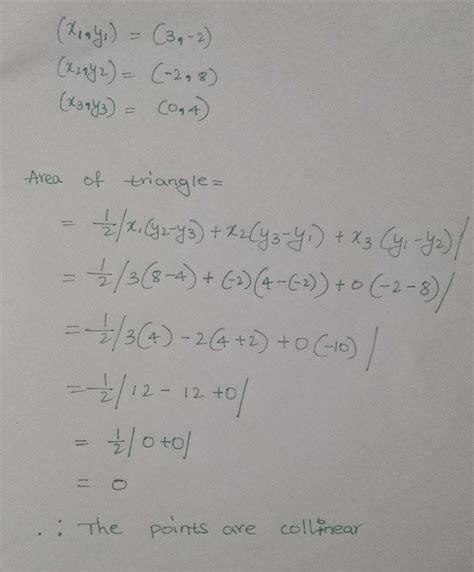 (x₁,y₁) = (3,-2)
(x₂,y₂) = (-2,8)
(x₃,y₃) = (0,4)
Area of triangle=
= 1/2 |x₁(y₂-y₃) + x₂(y₃-y₁) + x₃(y₁-y₂)|
= 1/2 |3(8-4) + (-2)(4-(-2)) + 0(-2-8)|
= 1/2 |3(4) - 2(4+2) + 0(-10)|
= 1/2 |12 - 12 + 0|
= 1/2 |0+0|
= 0
∴ The points are collinear